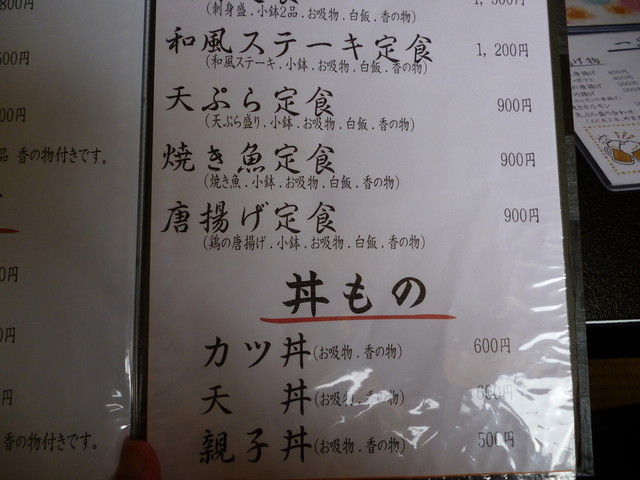 800円
500円
00円
品 香の物付きです。
0円
0円
円
香の物付きです。
(刺身盛.小鉢2品.お吸物.白飯.香の物)
和風ステーキ定食 1,200円
(和風ステーキ.小鉢.お吸物.白飯.香の物)
天ぷら定食 900円
(天ぷら盛り.小鉢.お吸物.白飯.香の物)
焼き魚定食 900円
(焼き魚.小鉢.お吸物.白飯.香の物)
唐揚げ定食 900円
(鶏の唐揚げ.小鉢.お吸物.白飯.香の物)
丼もの
カツ丼(お吸物.香の物) 600円
天 丼(お吸物.香の物) 600円
親子丼(お吸物.香の物) 500円
げ物